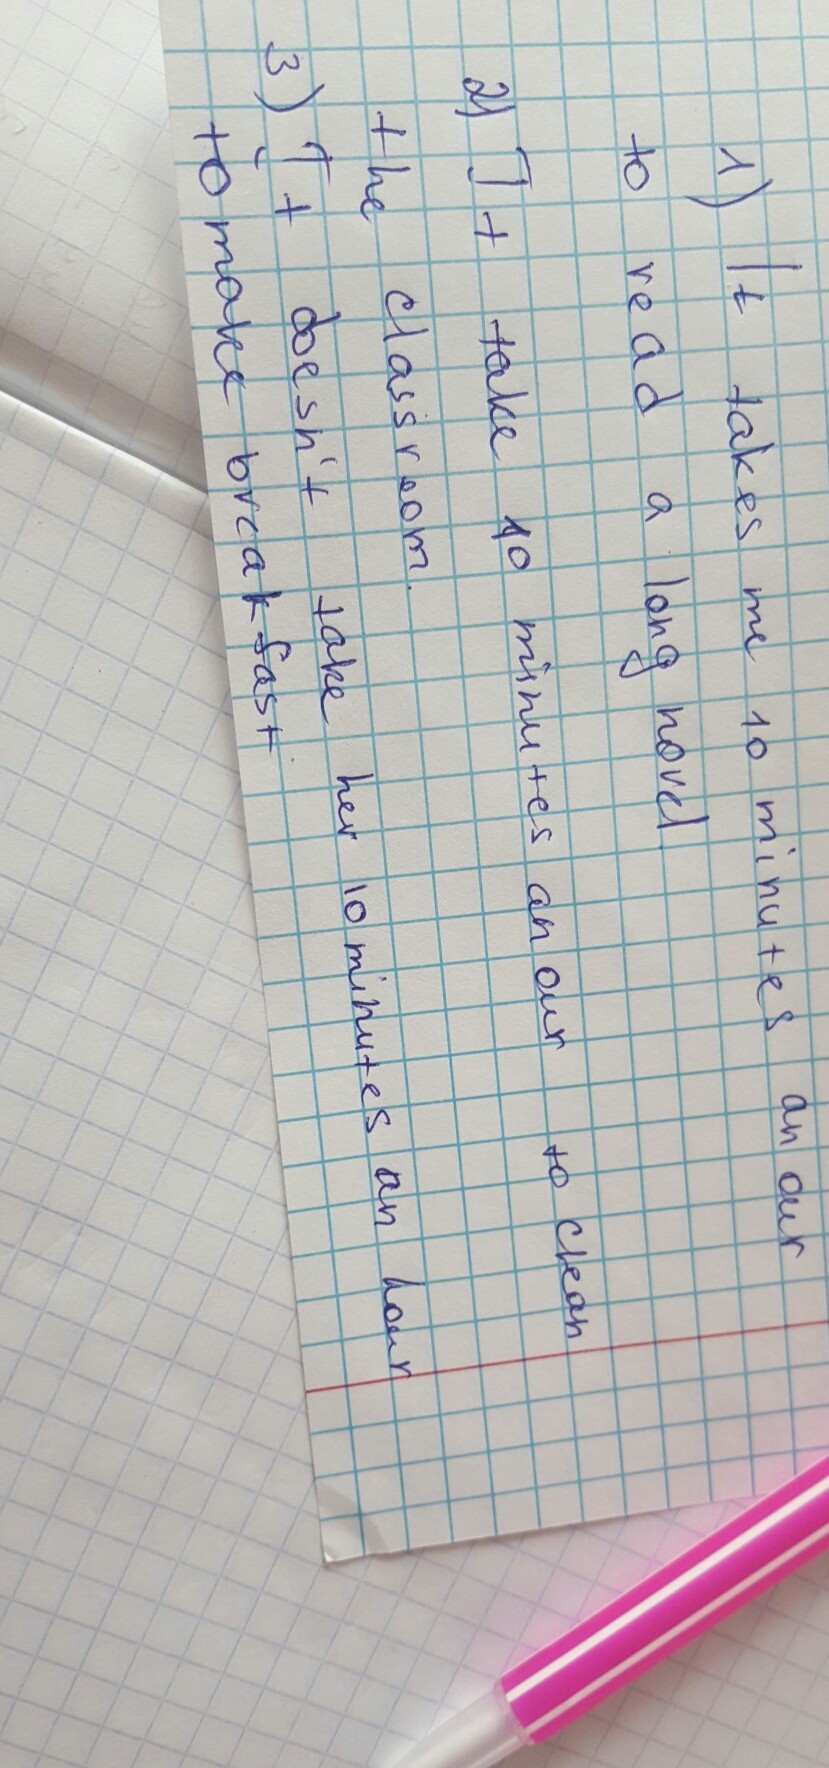 1) It takes me 10 minutes an our
to read a long novel
2) It take 10 minutes an our to clean
the classroom.
3) It doesn't take her 10 minutes an hour
to make breakfast